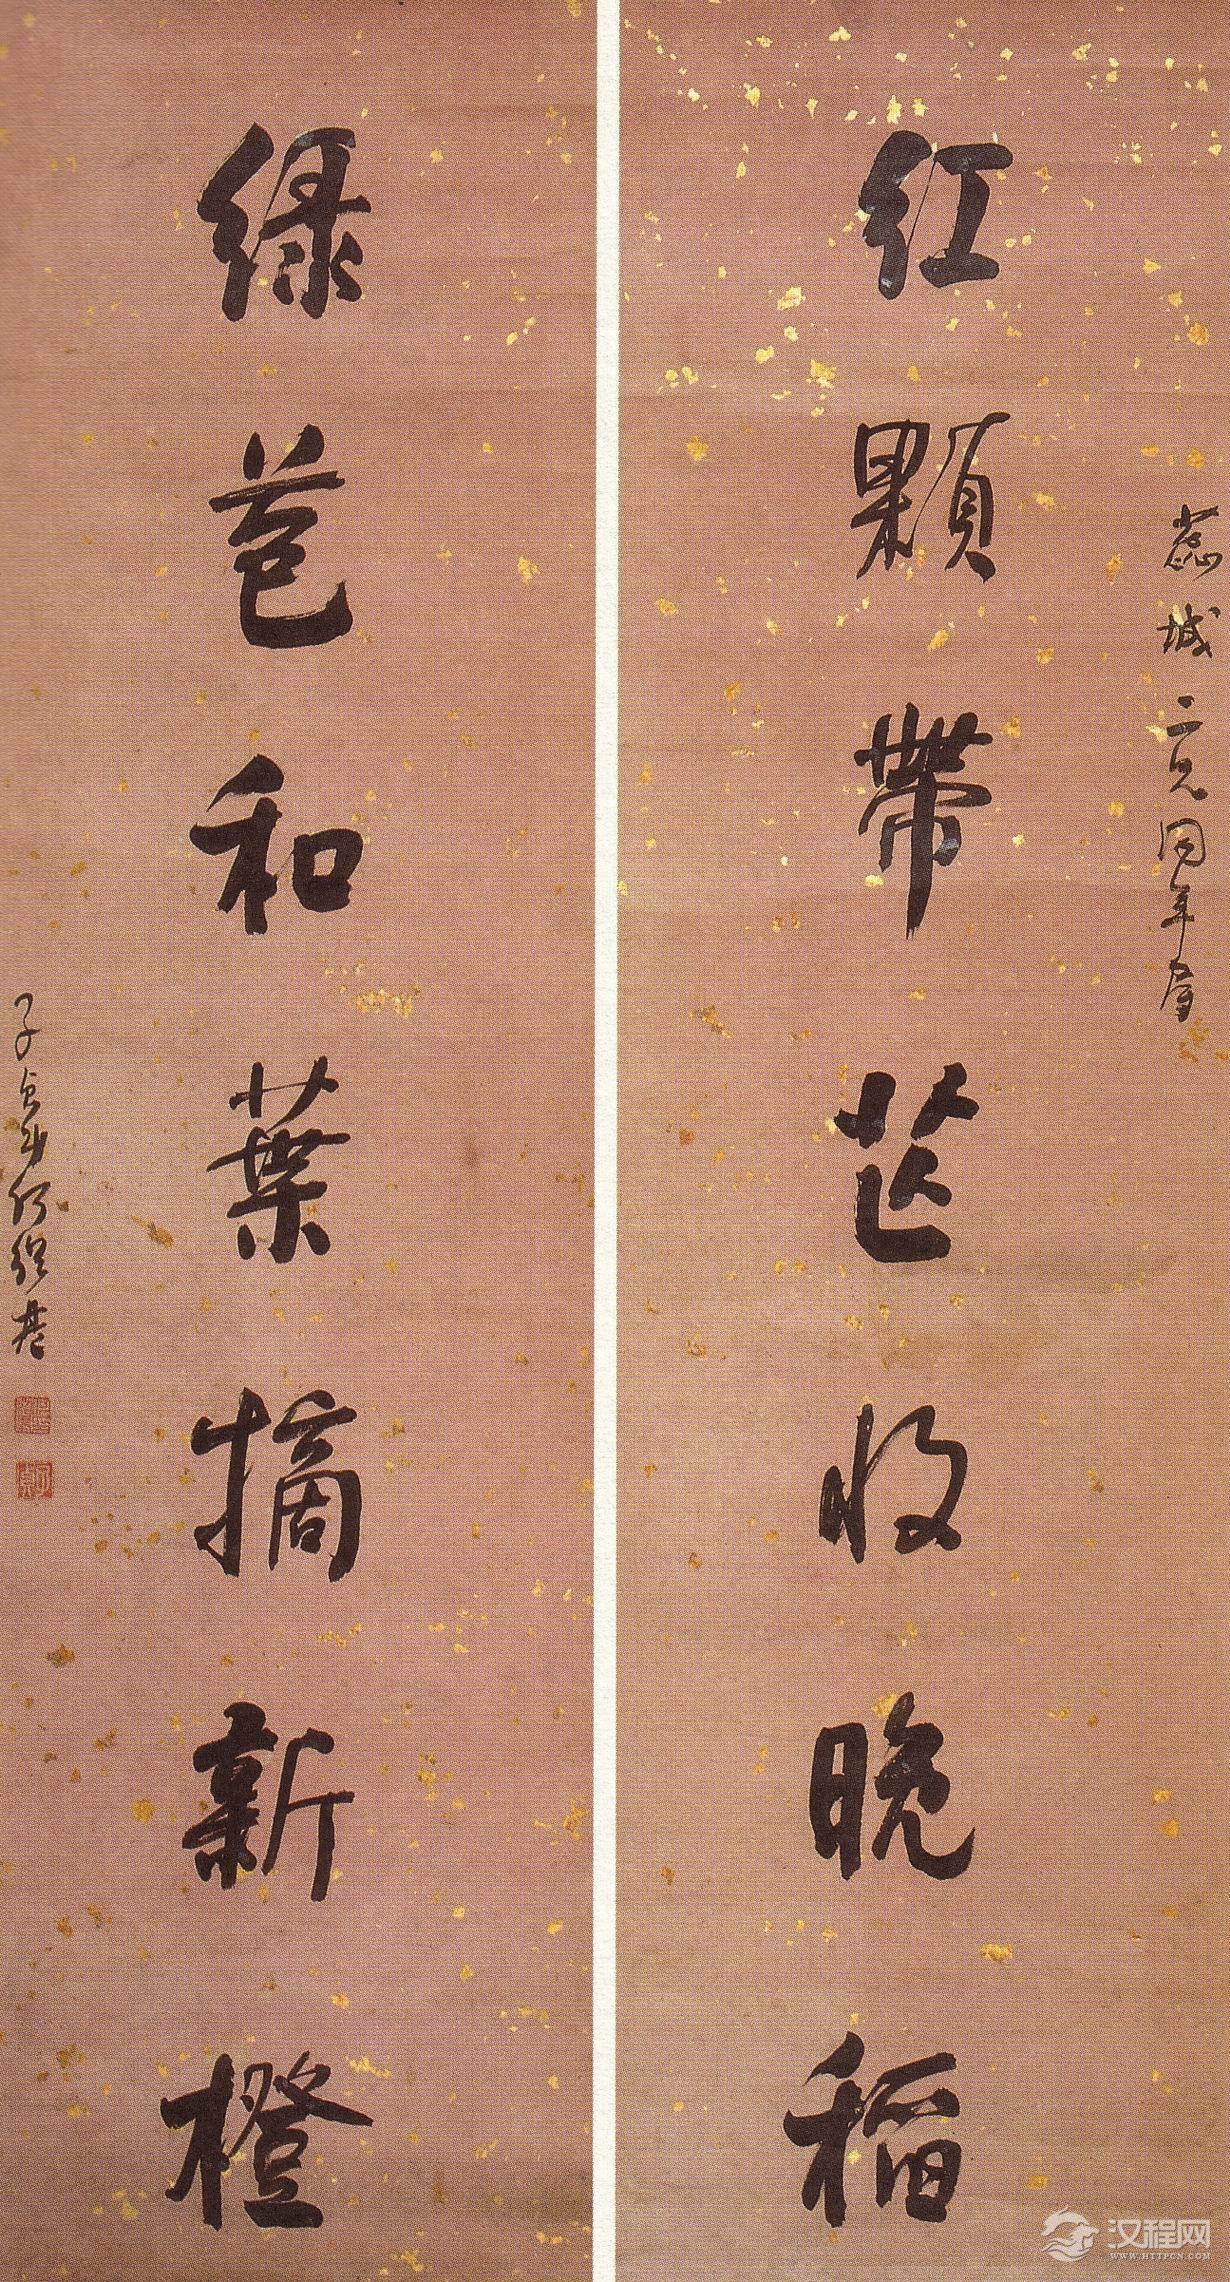 蕊城二兄同年屬
紅顆帶芒收晚稻
綠苞和葉摘新橙
子貞弟何紹基
子貞
汉程网
WWW.HTTPCN.COM